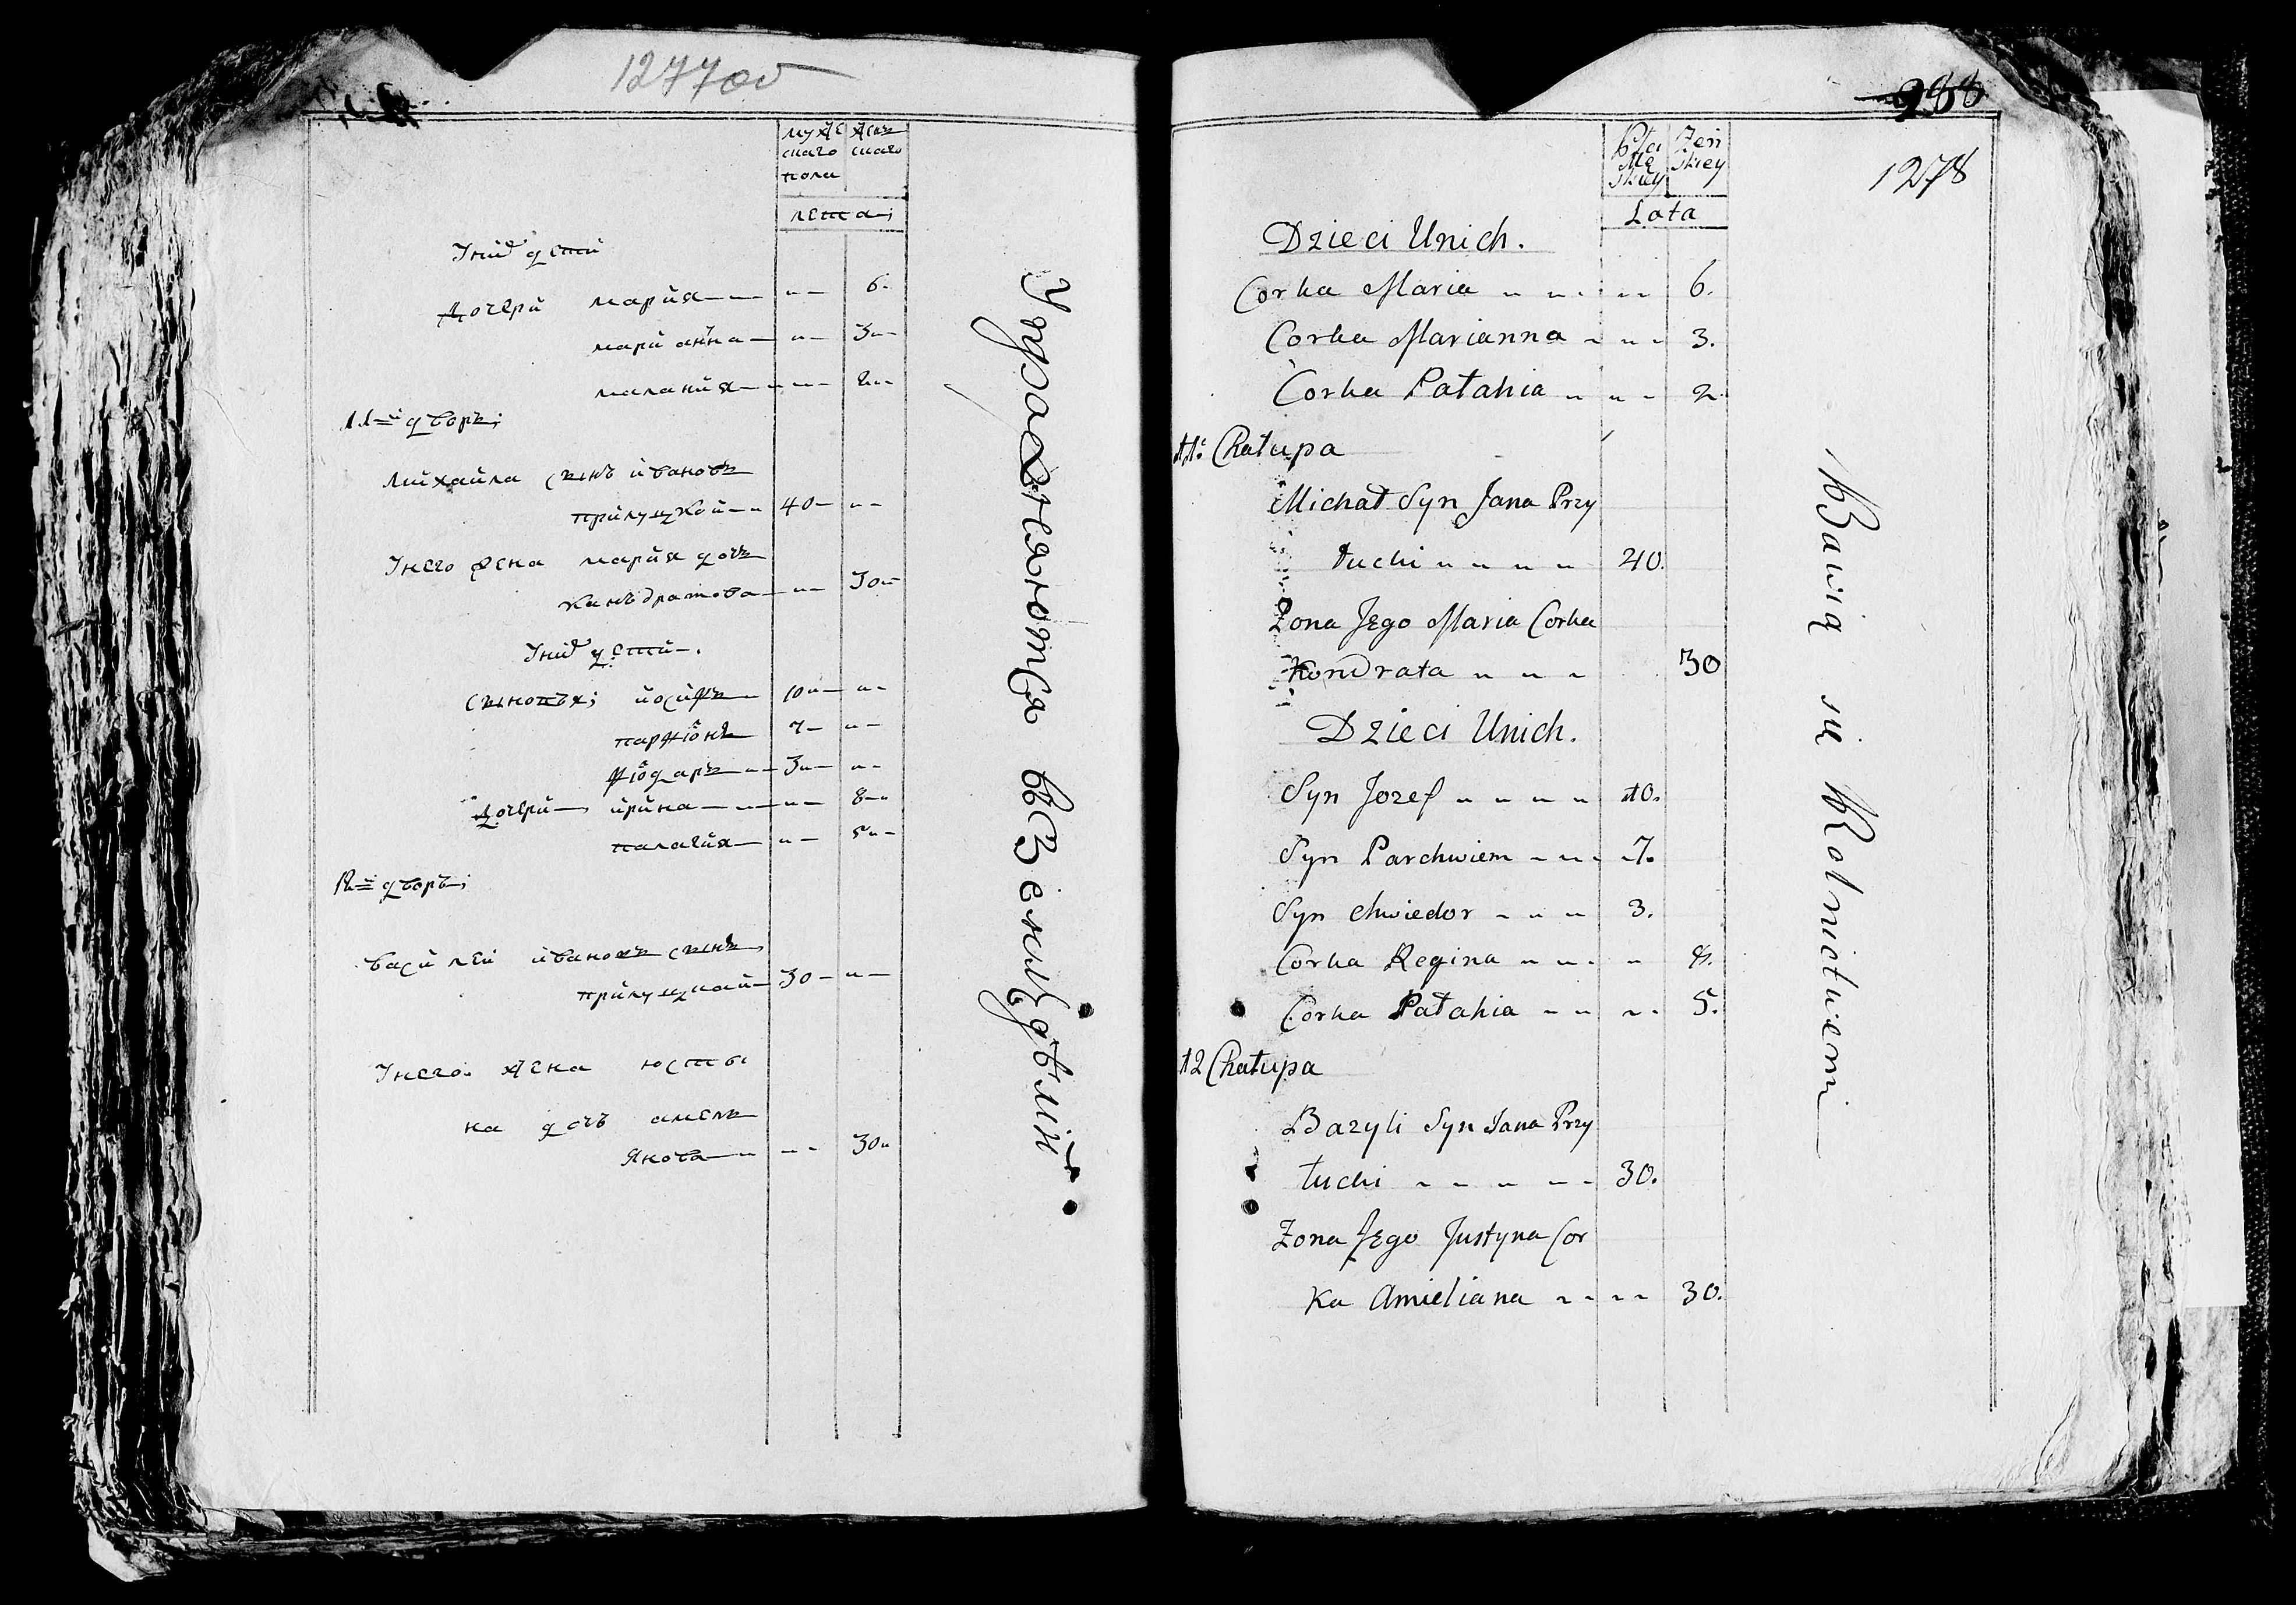 1277об
мужс женъ
скаго скаго
пола
лета;
Унихъ дети
дочери мария 6.
марианна 3
малания 2
11й дворъ;
михайла сынъ ивановъ
прилуцкой 40
Унего жена мария дочь
канъдратова 30
Унихъ дети.
сыновья; иосифъ 10
парфiонъ 7
фiодаръ 3
дочери ирина 8
палагия 5
12й дворъ;
василей ивановъ сынъ
прилуцкай 30
Унего жена юсты
на дочъ амелъ
янова 30
Упражняются въ Земледѣлiи
288
1278
Płci Żeń
Mę skiey
skiey
Lata
Dzieci Unich.
Corka Maria 6.
Corka Marianna 3.
Corka Pałahia 2.
11. Chałupa
Michał Syn Jana Przy
łuchi 40.
Zona Jego Maria Corka
Kondrata 30
Dzieci Unich.
Syn Jozef 10.
Syn Parchwiem 7.
Syn Chwiedor 3.
Corka Regina 8.
Corka Pałahia 5.
12 Chałupa
Bazyli Syn Jana Przy
łuchi 30.
Zona Jego Justyna Cor
Ka Amieliana 30.
Bawią się Rolnictwem